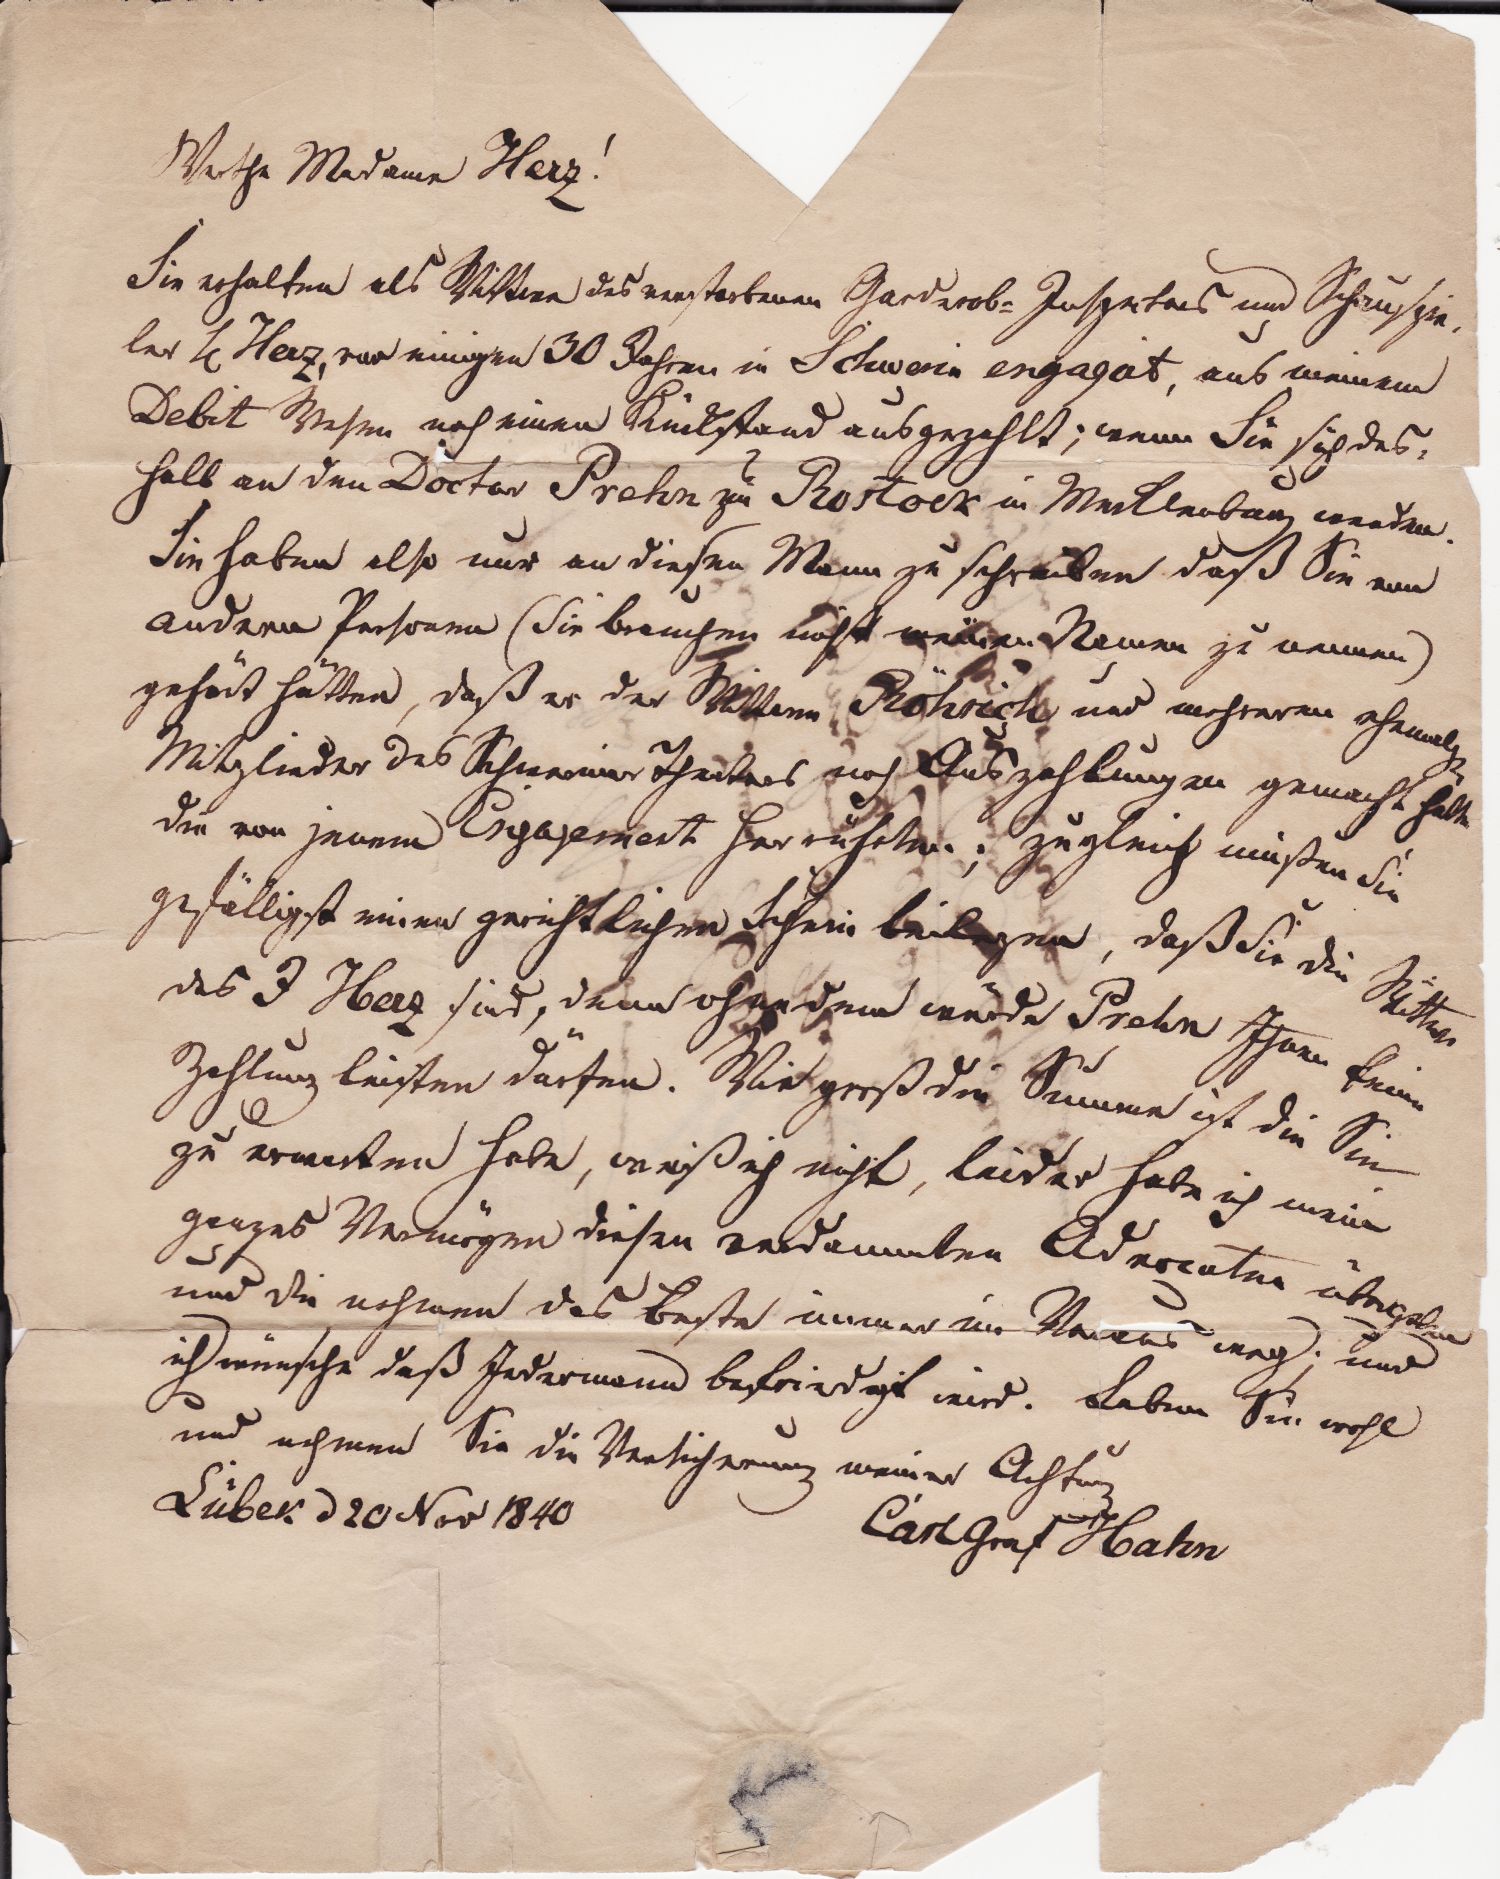 Werthe Madame Herz!
Sie erhalten als Wittwe des verstorbenen Garderob= Inspectors und Schauspie,
ler H Herz, vor einigen 30 Jahren in Schwerin engagirt, aus meinem
Debit Wesen noch einen Rückstand ausgezahlt; wenn Sie sich des,
halb an den Doctor Prehn zu Rostock in Mecklenburg wenden.
Sie haben also nur an diesen Mann zu schreiben daß Sie von
andern Personen (Sie brauchen nicht meinen Namen zu nennen)
gehört hätten, daß er der Wittwe Röhrich und mehreren ehemalg
Mitglieder des Schweriner Theaters noch Auszahlungen gemacht hätte
die von jenem Engagement herrührten; zugleich müßen Sie
gefälligst einen gerichtlichen Schein beilegen, daß Sie die Wittwe
des J Herz sind, denn ohnedem würde Prehn Ihnen keine
Zahlung leisten dürfen. Wie groß die Summe ist die Sie
zu erwarten habe, weiß ich nicht, leider habe ich mein
ganzes Vermögen diesen verdammten Advocaten übergeben
und die nehmen das Beste immer im Voraus weg; und
ich wünsche daß Jedermann befriedigt wird. Leben Sie wohl
und nehmen Sie die Versicherung meiner Achtung
Lübek d 20 Nov 1840
Carl Graf Hahn